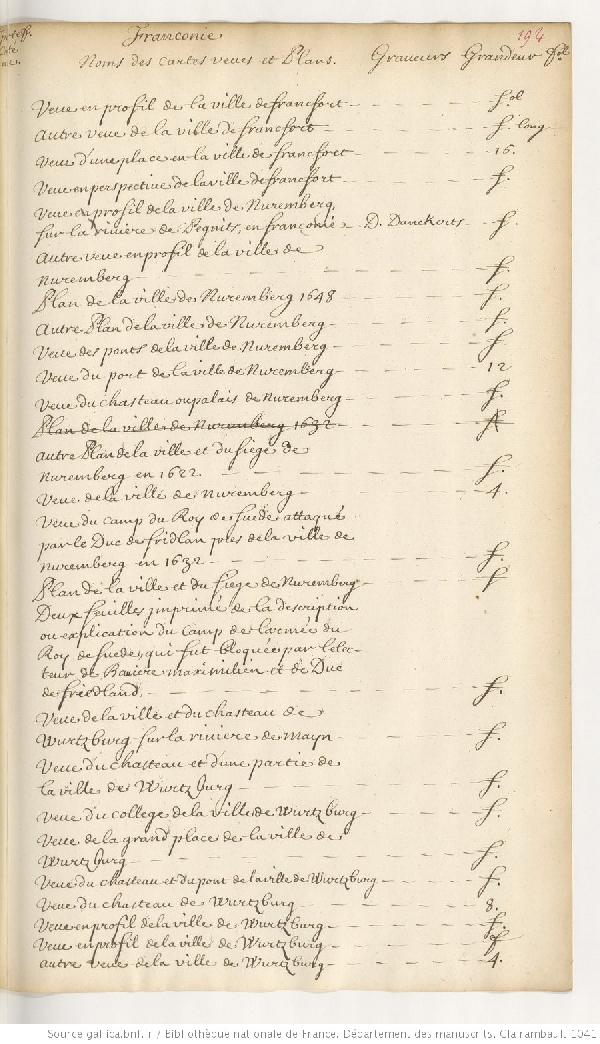 Franconie 194
Noms des cartes veues et Plans. Graveurs Grandeur fol
Veue en profil de la ville de francfort - fol
Autre veue de la ville de francfort - f. long
Veue d'une place en la ville de francfort - 16.
Veue en perspective de la ville de francfort - f.
Veue en profil de la ville de Nuremberg,
sur la riviere de Pegnits, en franconie - D. Danckerts - f.
Autre veue en profil de la ville de
Nuremberg - f.
Plan de la ville de Nuremberg 1648 - f.
Autre Plan de la ville de Nuremberg - f.
Veue des ponts de la ville de Nuremberg - f
Veue du port de la ville de Nuremberg - 12
Veue du chasteau ou palais de Nuremberg - f.
Plan de la ville de Nuremberg 1632 - f
autre Plan de la ville et du siege de
Nuremberg en 1622 - f.
Veue de la ville de nuremberg - 4.
Veue du camp du Roy de suede attaqué
par le Duc de fridlan pres de la ville de
nuremberg en 1632 - f.
Plan de la ville et du siege de Nuremberg - f
Deux feuilles jmprimé de la description
ou explication du camp de l'armée du
Roy de suede, qui fut bloquée par l'elec-
teur de Baviere maximilien et de Duc
de friedland, - f.
Veue de la ville et du chasteau de
Wurtzburg sur la riviere de Mayn - f.
Veue du chasteau et d'une partie de
la ville de Wurtzburg - f.
veue du college de la ville de Wurtzburg - f.
Veue de la grand place de la ville de
Wurtzburg - f.
Veue du chasteau et du pont de la ville de Wurtzburg - f.
Veue du chasteau de Wurtzburg - 8.
Veue en profil de la ville de Wurtzburg - f.
Veue en profil de la ville de Wurtzburg - f
autre veue de la ville de Wurtzburg - 4.
Source gallica.bnf.fr / Bibliothèque nationale de France. Département des manuscrits. Clairambault 1041